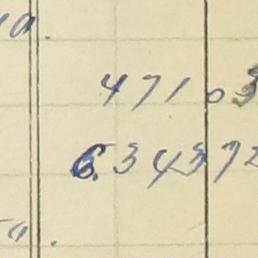 471 03
6.343 72